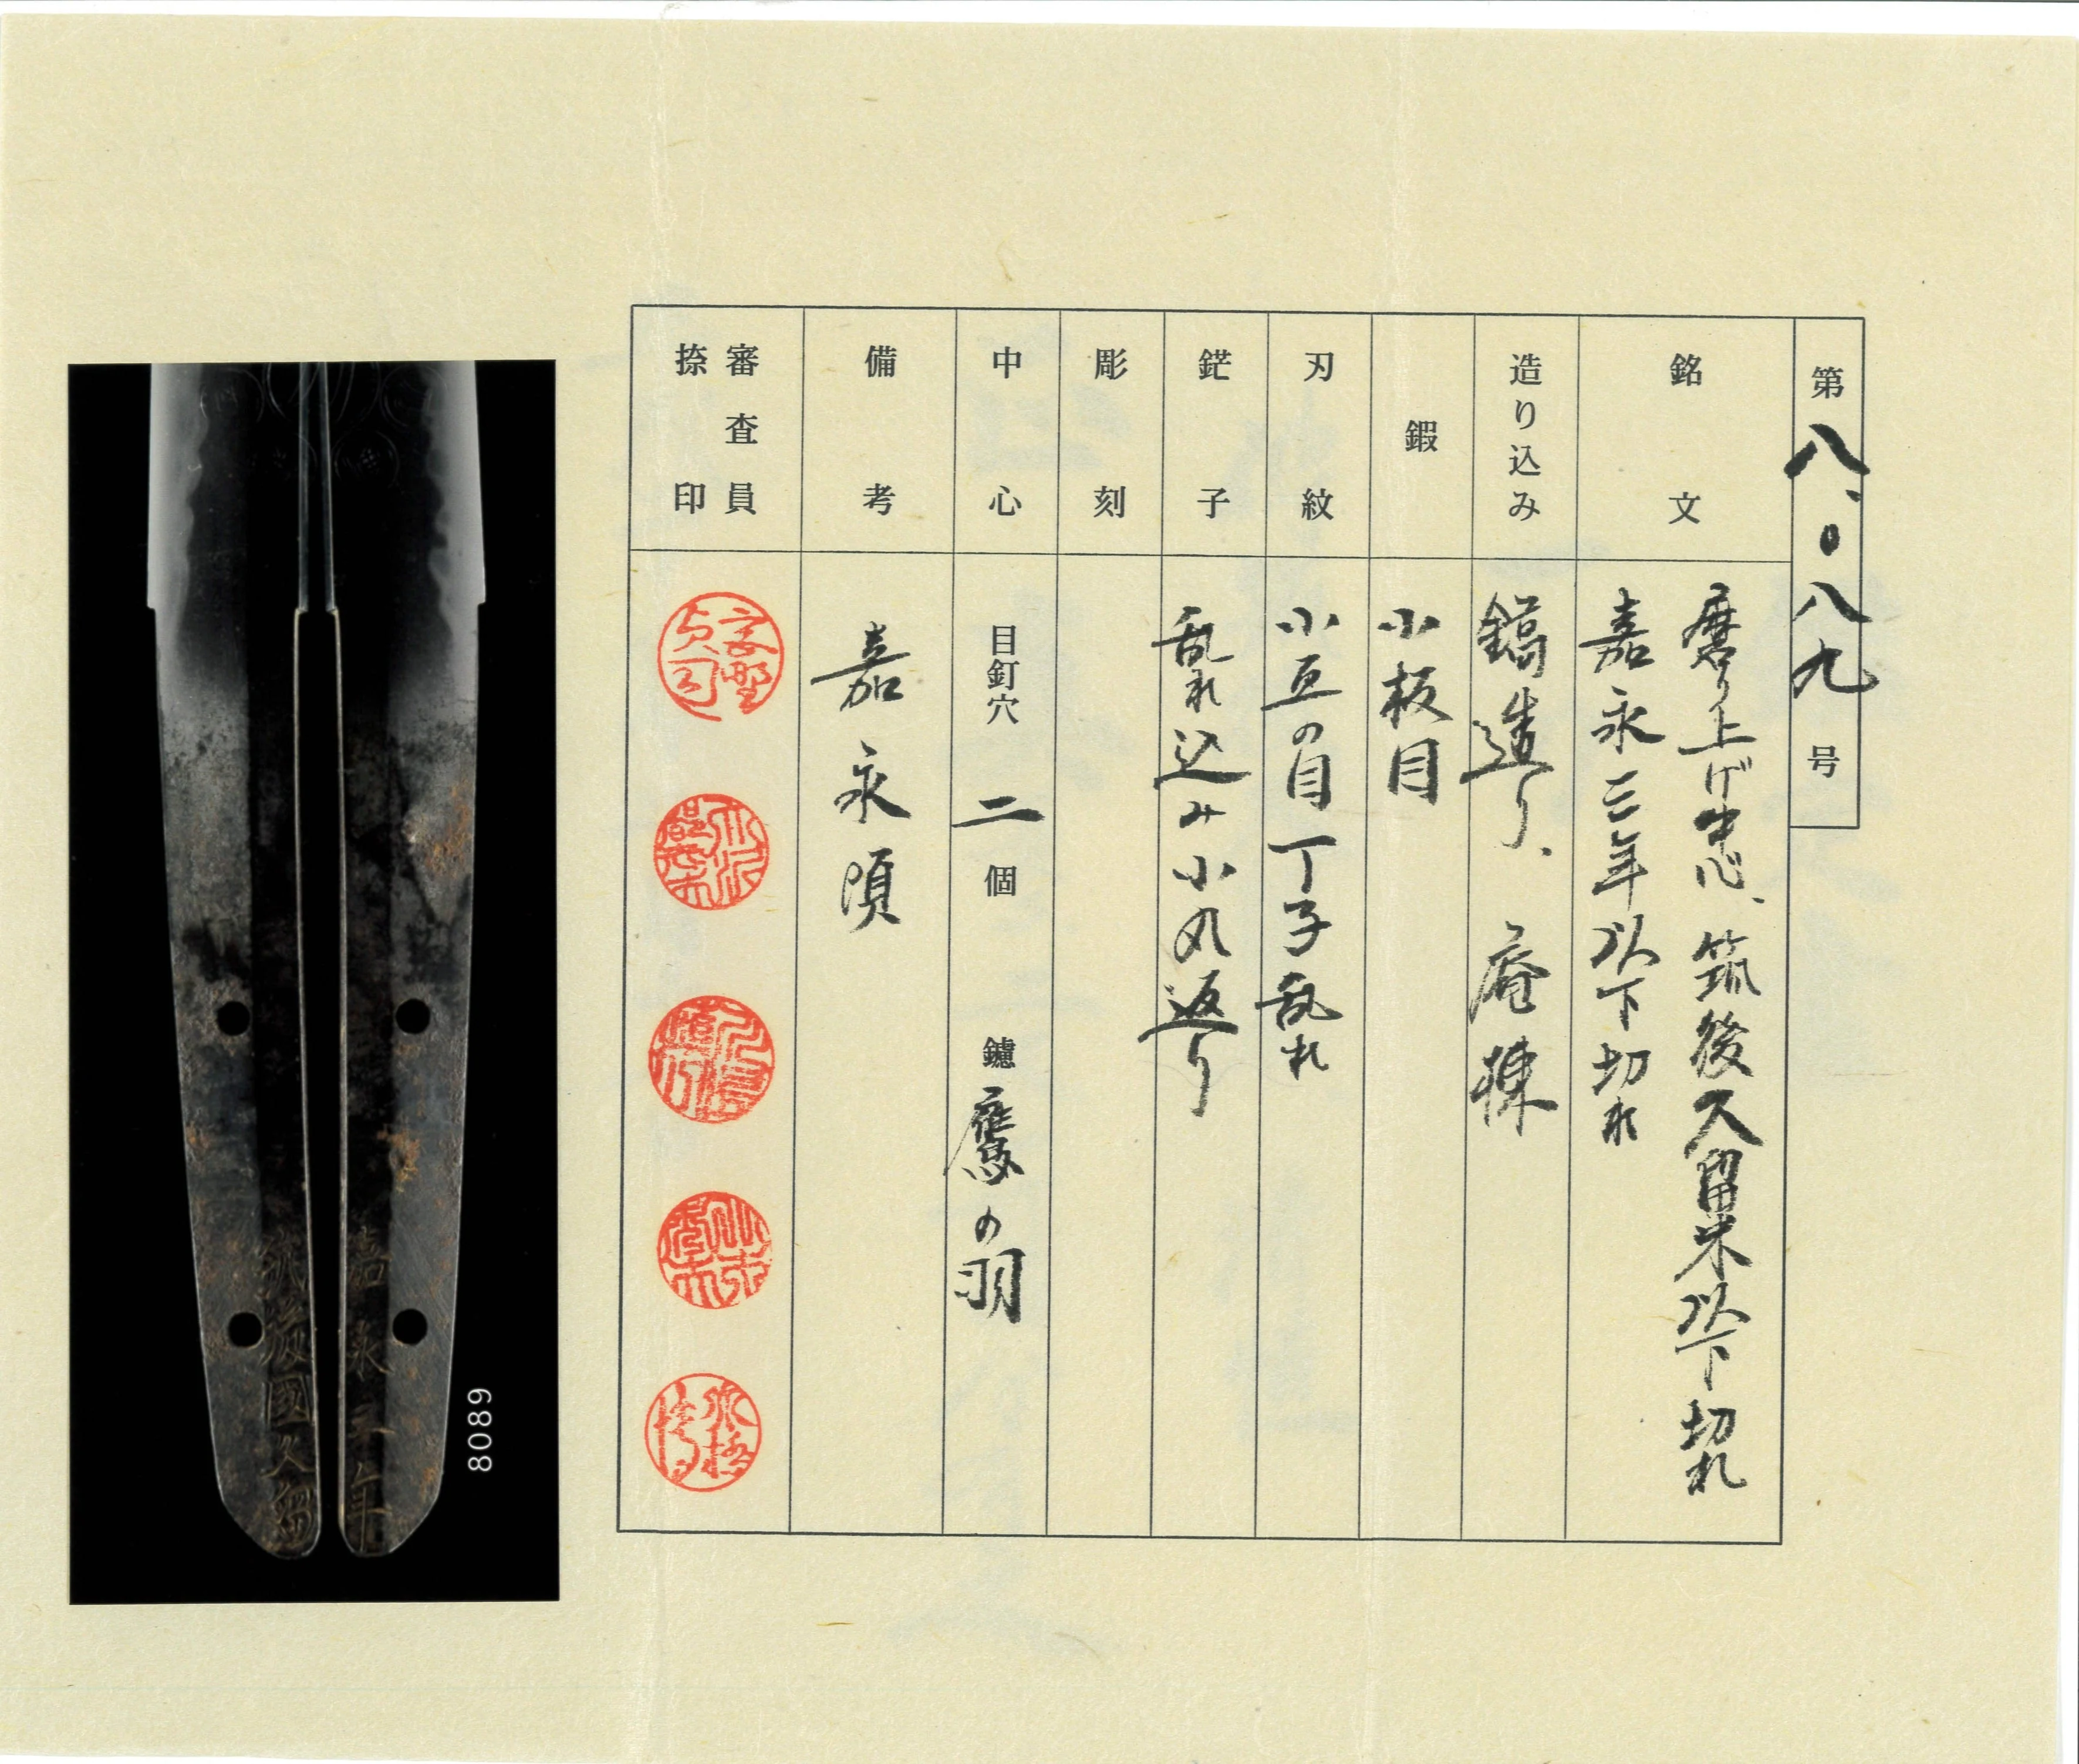 第八、〇八九号
銘文
磨り上げ中心、筑後久留米以下切れ
嘉永三年以下切れ
造り込み
鎬造り、庵棟
鍜
小板目
刃紋
小互の目丁子乱れ
鋩子
乱れ込み小丸返り
彫刻
中心
目釘穴 二個 鑢 鷹の羽
備考
嘉永頃
審査員
捺印
8089
嘉永三年
筑後國久留